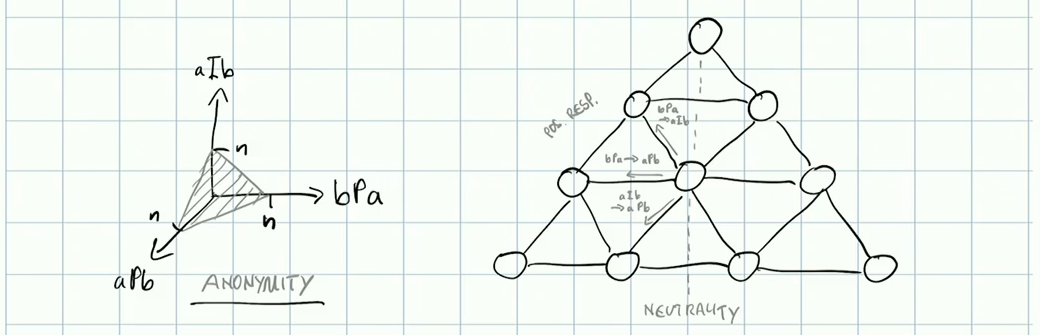 aIb
n
bPa
n
n
aPb
ANONYMITY
POS. RESP.
bPa
→aIb
bPa→aPb
aIb
→aPb
NEUTRALITY